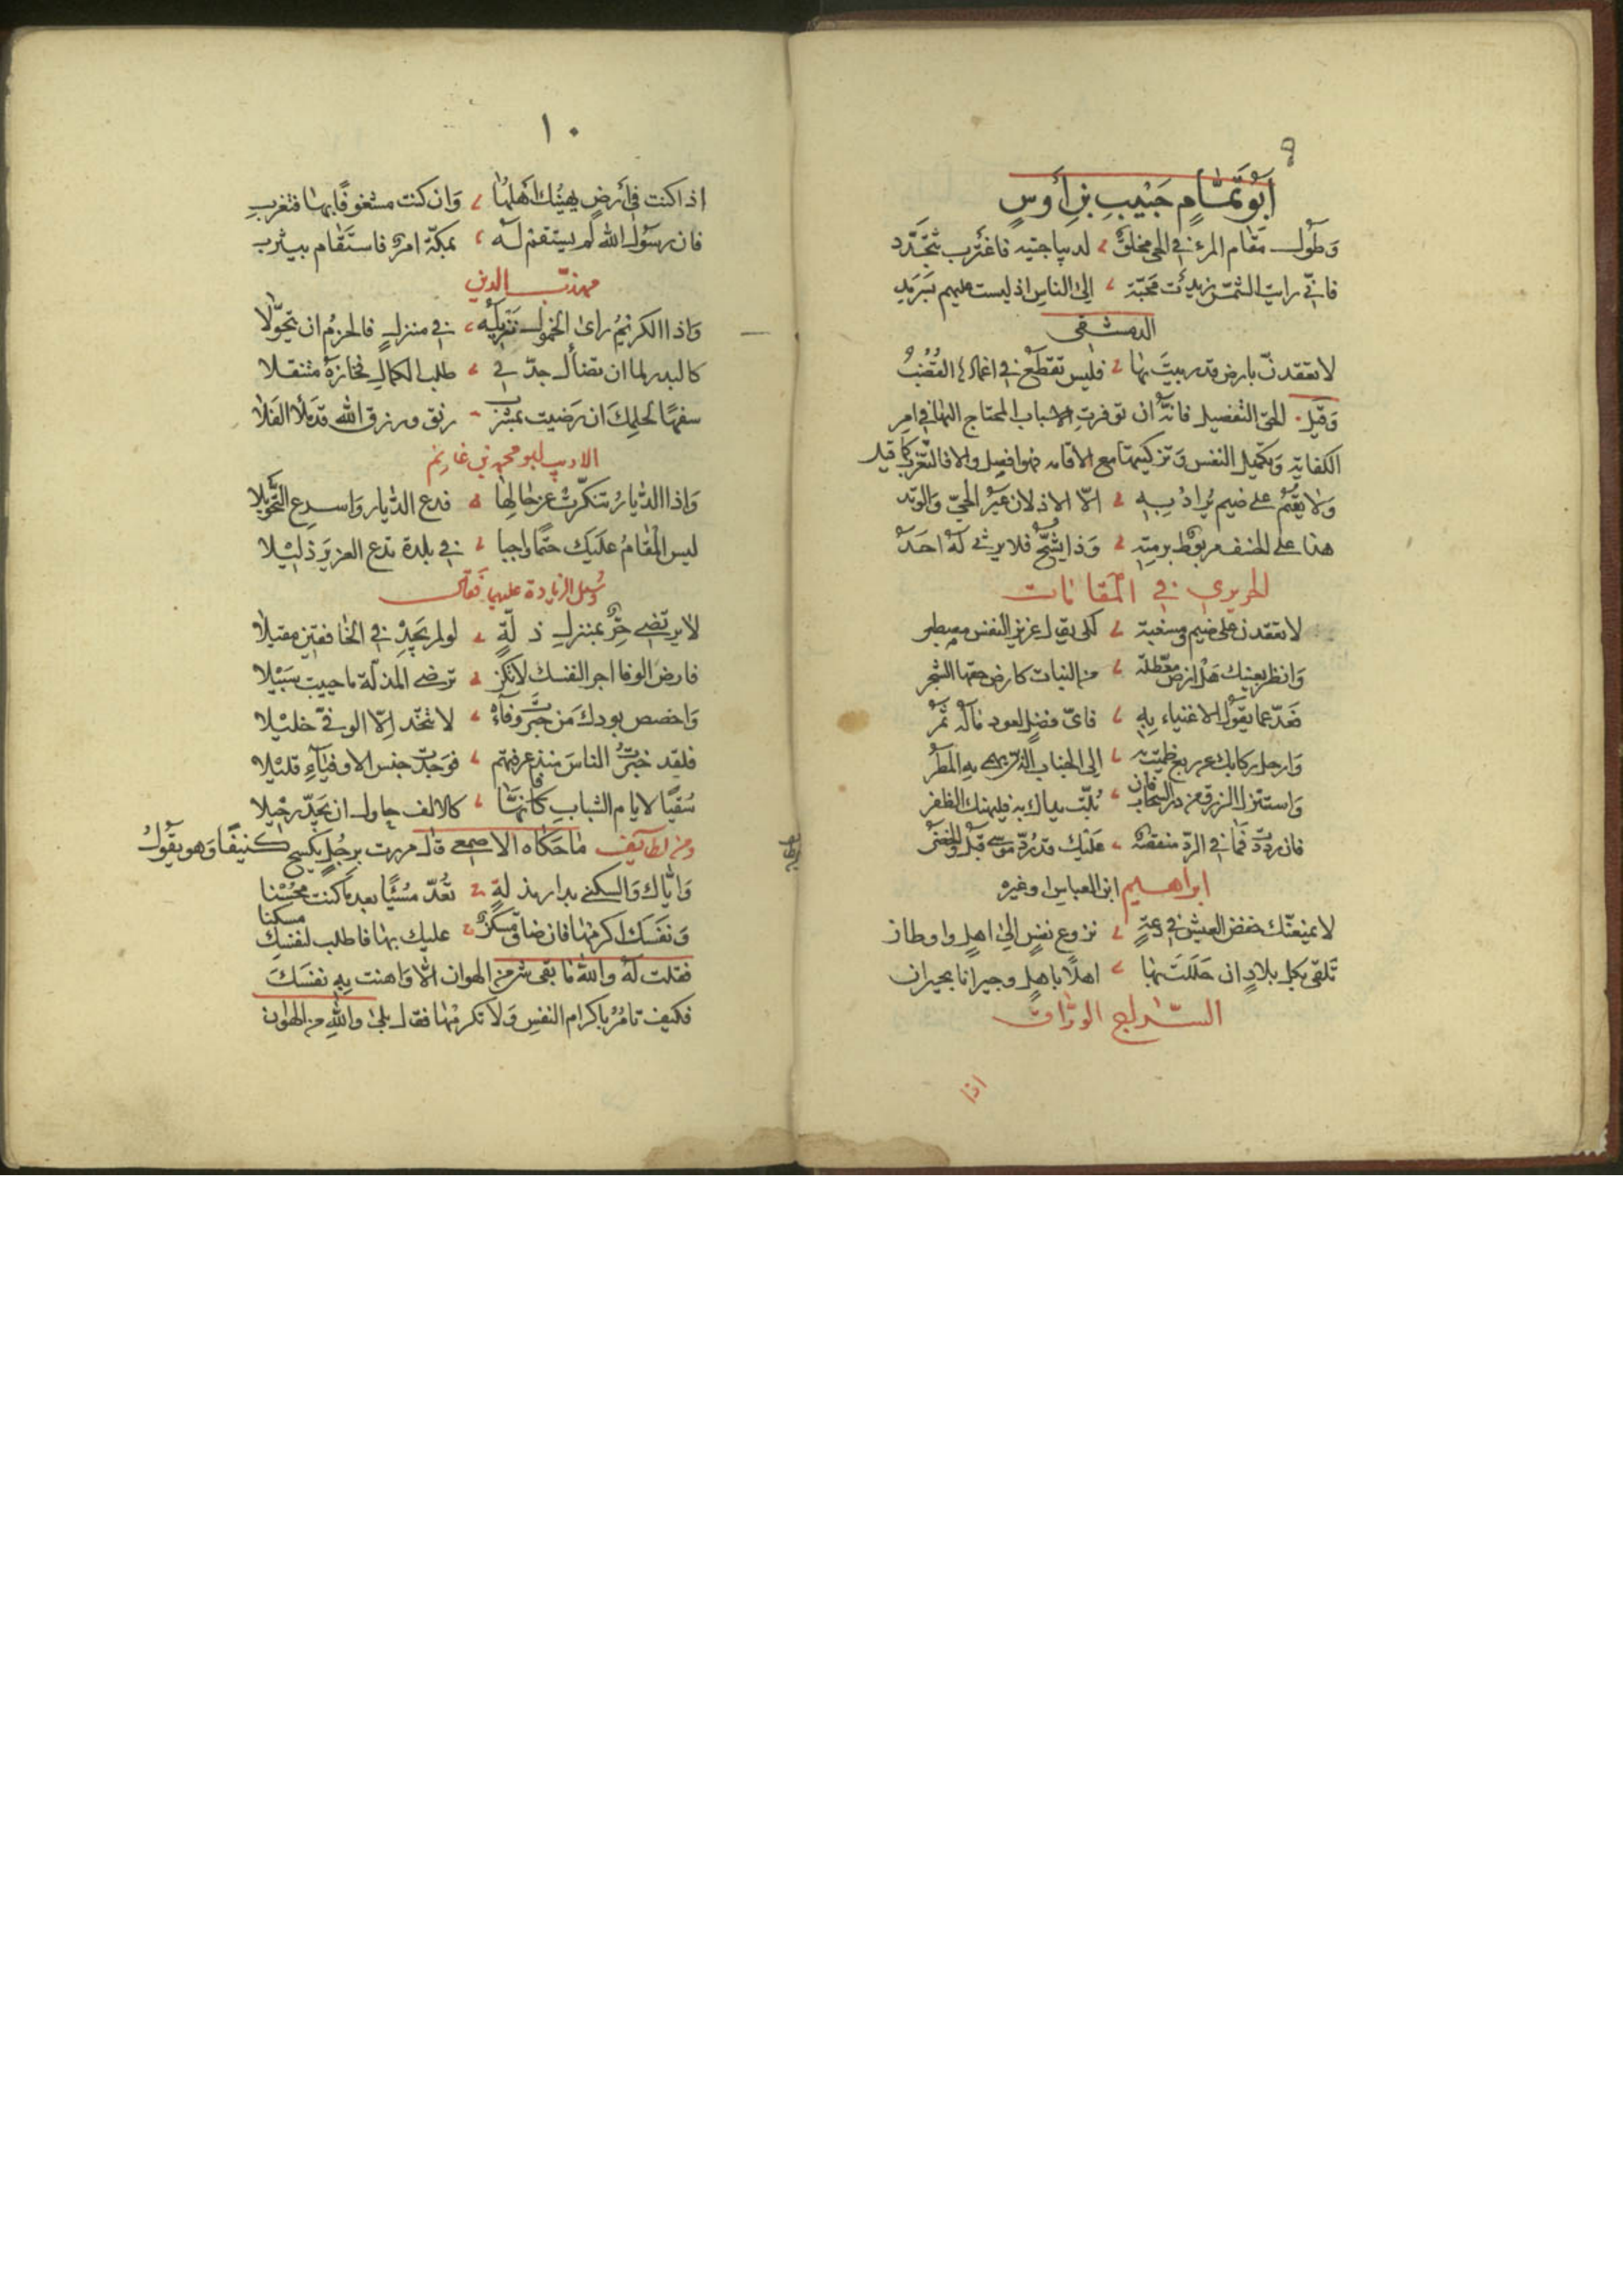 ٩
أبو تمام حبيب بن أوس
وطول مقام المرء في الحي مخلق لديباجتيه فاغترب تتجدد
فاني رايت الشمس زيدت محبة الى الناس اذ ليست عليهم بسرمد
الدمشقي
لا تقعدن بارض قد ربيت بها فليس تقطع في اغمادها القضب
وقيل الحق التفصيل فانه ان توفرت الاسباب المحتاج اليها في امر
الكفاية وتكميل النفس وتزكيتها مع الاقامه فهو افضل والا فالتغرب كما قيل
ولا يقيم على ضيم يراد به الا الاذلان عير الحي والوتد
هذا على الخسف مربوط برمته وذا يشج فلا يرثي له احد
الحريري في المقامات
لا تقعدن على ضيم ومسغبة لكي يقال عزيز النفس مصطبر
وانظر بعينك هل ارض معطلة من النبات كارض حفها الشجر
فعد عما يقول الاغنياء به فاي فضل لعود ماله ثمر
وارحل ركابك عن ربع ظميت به الى الجناب الذي يهمي به المطر
واستنزل الرزق من در السحاب فان بلت يداك به فليهنك الظفر
فان رددت فما في الرد منقصة عليك قد رد موسى قبل والخضر
ابراهيم ابن العباس وغيره
لا يمنعنك خفض العيش في دعة نزوع نفس الى اهل واوطان
تلقى بكل بلاد ان حللت بها اهلا باهل وجيرانا بجيران
السراج الوراق
اذا
١٠
اذا كنت في أرض يهينك اهلها وان كنت مشغوفا بها فتغرب
فان رسول الله لم يستقم له بمكة امر فاستقام بيثرب
مهذب الدين
واذا الكريم راى الخمول نزيله في منزل فالحزم ان يتحولا
كالبدر لما ان تضأل جد في طلب الكمال فحازه متنقلا
سفها لحلمك ان رضيت بمشرب رنق ورزق الله قد ملأ الفلا
الاديب ابو محمد بن غانم
واذا الديار تنكرت عن حالها فدع الديار واسرع التحويلا
ليس المقام عليك حتما واجبا في بلدة تدع العزيز ذليلا
وسئل الزيادة عليهما فقال
لا يرتضي حر بمنزل ذلة لو لم يجد في الخافقين مقيلا
فارض الوفا اجرا لنفسك لا تكن ترضى المذلة ما حييت سبيلا
واخصص بودك من خبرت وفاءه لا تتخذ الا الوفي خليلا
فلقد خبرت الناس منذ عرفتهم فوجدت جنس الاوفياء قليلا
سقيا لايام الشباب فانها كالالف حاول ان يجد رحيلا
ومن لطايف ما حكاه الاصمعي قال مررت برجل يكسح كنيفا وهو يقول
واياك والسكنى بدار مذلة تعد مسيئا بعد ما كنت محسنا
ونفسك اكرمها فان ضاق مسكن عليك بها فاطلب لنفسك مسكنا
فقلت له والله ما بقى شر من الهوان الا واهنت به نفسك
فكيف تامر باكرام النفس ولا تكرمها فقال بلى والله من الهوان